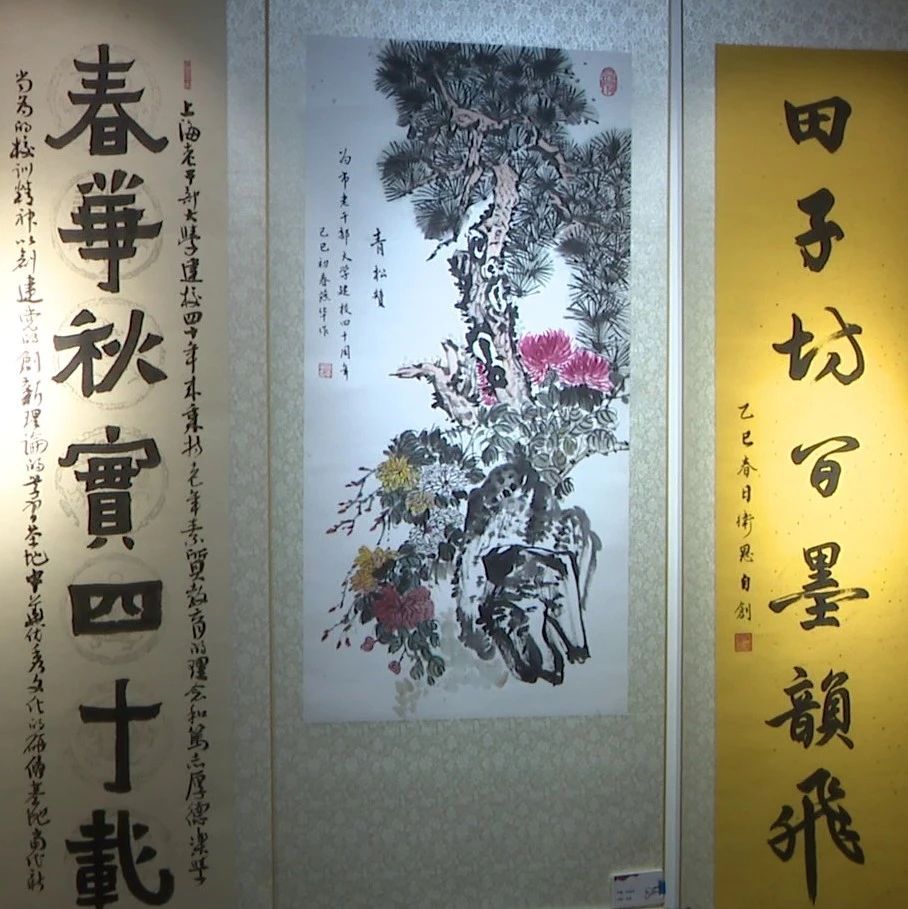 春華秋實四十載
上海老干部大學建校四十年来秉持老年素質教育的理念和篤志厚德潔學
尚為的校訓精神以創建
創新理論的學習苦地中
優秀文化的
青松贊
为市老干部大学建校四十周年
乙巳初春
华作
田子坊间墨韻飛
乙巳春日衛恩自創